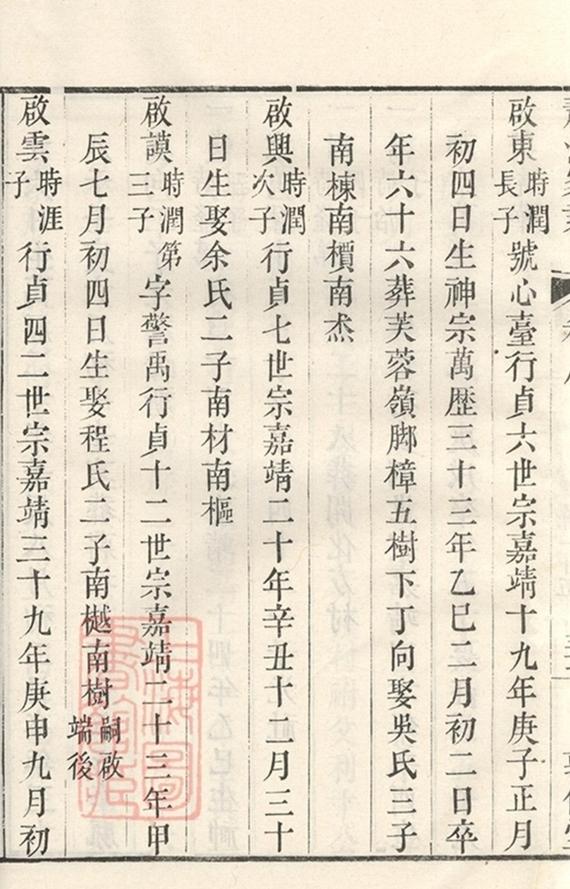 啟東時潤長子號心臺行貞六世宗嘉靖十九年庚子正月
初四日生神宗萬歷三十三年乙巳二月初二日卒
年六十六葬芙蓉嶺脚樟五樹下丁向娶吳氏三子
南棟南檟南杰
啟興時潤次子行貞七世宗嘉靖二十年辛丑十二月三十
日生娶余氏二子南材南樞
啟謨時潤第三子字警禹行貞十二世宗嘉靖二十三年甲
辰七月初四日生娶程氏二子南樾南樹嗣啟端後
啟雲時涯子行貞四二世宗嘉靖三十九年庚申九月初